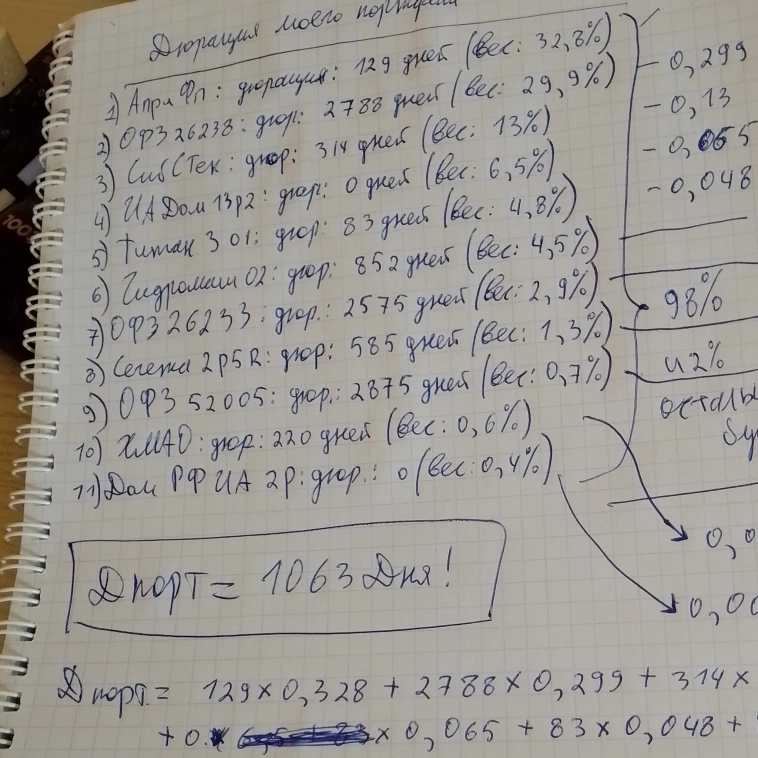 Дюрация моего портфеля
1) АприФп: дюрация: 129 дней (вес: 32,8%)
2) ОФЗ 26238: дюр: 2788 дней (вес: 29,9%)
3) СибСТек: дюр: 314 дней (вес: 13%)
4) ИАДом 13р2: дюр: 0 дней (вес: 6,5%)
5) Титан 3 01: дюр: 83 дней (вес: 4,8%)
6) Гидромаш 02: дюр: 852 дней (вес: 4,5%)
7) ОФЗ 26233: дюр.: 2575 дней (вес: 2,9%)
8) Сегежа 2р5R: дюр: 585 дней (вес: 1,3%)
9) ОФЗ 52005: дюр.: 2875 дней (вес: 0,7%)
10) ХМАО: дюр: 220 дней (вес: 0,6%)
11) Дом РФ ИА 2р: дюр.: 0 (вес: 0,4%)
- 0,299
- 0,13
- 0,065
- 0,048
98%
и 2%
0,0
0,00
Dпорт = 1063 Дня!
Dпорт. = 129 × 0,328 + 2788 × 0,299 + 314 ×
+ 0 × 0,065 + 83 × 0,048 +